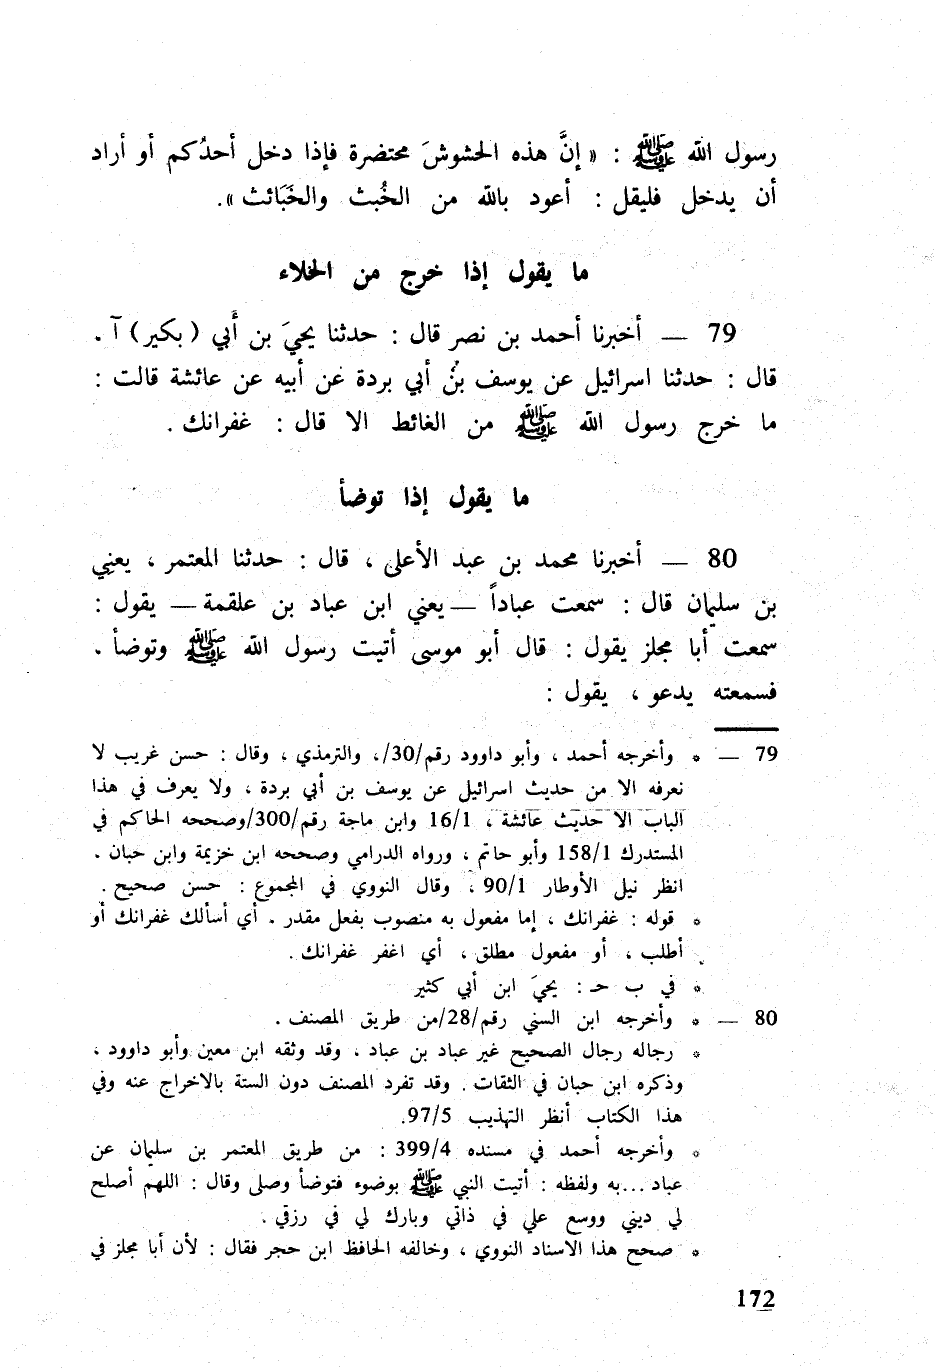 رسول الله ﷺ : « إنَّ هذه الحشوشَ محتضرة فإذا دخل أحدُكم أو أراد
أن يدخل فليقل : أعود بالله من الخُبث والخَبَائث ».
ما يقول إذا خرج من الخلاء
79 — أخبرنا أحمد بن نصر قال : حدثنا يحيَ بن أَبي ( بكير ) آ .
قال : حدثنا اسرائيل عن يوسف بنُ أبي بردة عن أبيه عن عائشة قالت :
ما خرج رسول الله ﷺ من الغائط الا قال : غفرانك .
ما يقول إذا توضأ
80 — أخبرنا محمد بن عبد الأعلى ، قال : حدثنا المعتمر ، يعنِي
بن سليمان قال : سمعت عباداً — يعني ابن عباد بن علقمة — يقول :
سمعت أبا مجلز يقول : قال أبو موسى أتيت رسول الله ﷺ وتوضأ .
فسمعته يدعو ، يقول :
79 — * وأخرجه أحمد ، وأبو داوود رقم/30/، والترمذي ، وقال : حسن غريب لا
نعرفه الا من حديث اسرائيل عن يوسف بن أبي بردة ، ولا يعرف في هذا
الباب الا حديث عائشة ، 16/1 وابن ماجة رقم/300/وصححه الحاكم في
المستدرك 158/1 وأبو حاتم ، ورواه الدرامي وصححه ابن خزيمة وابن حبان .
انظر نيل الأوطار 90/1 ، وقال النووي في المجموع : حسن صحيح .
* قوله : غفرانك ، إما مفعول به منصوب بفعل مقدر . أي أسألك غفرانك أو
أطلب ، أو مفعول مطلق ، أي اغفر غفرانك .
* في ب حـ : يحيَ ابن أبي كثير
80 — * وأخرجه ابن السني رقم/28/من طريق المصنف .
* رجاله رجال الصحيح غير عباد بن عباد ، وقد وثقه ابن معين وأبو داوود ،
وذكره ابن حبان في الثقات . وقد تفرد المصنف دون الستة بالاخراج عنه وفي
هذا الكتاب أنظر التهذيب 97/5.
* وأخرجه أحمد في مسنده 399/4 : من طريق المعتمر بن سليمان عن
عباد ...به ولفظه : أتيت النبي ﷺ بوضوء فتوضأ وصلى وقال : اللهم أصلح
لي ديني ووسع علي في ذاتي وبارك لي في رزقي .
* صحح هذا الاسناد النووي ، وخالفه الحافظ ابن حجر فقال : لأن أبا مجلز في
172